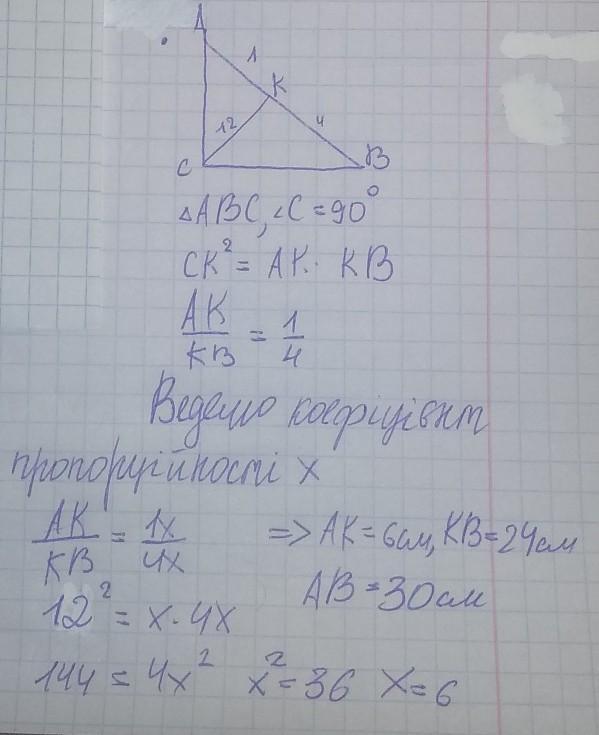 A
1
K
12
4
C
B
△ABC, ∠C = 90°
CK² = AK · KB
AK/KB = 1/4
Ведемо коефіцієнт
пропорційності x
AK/KB = 1x/4x => AK = 6см, KB = 24см
AB = 30см
12² = x · 4x
144 = 4x² x² = 36 x = 6